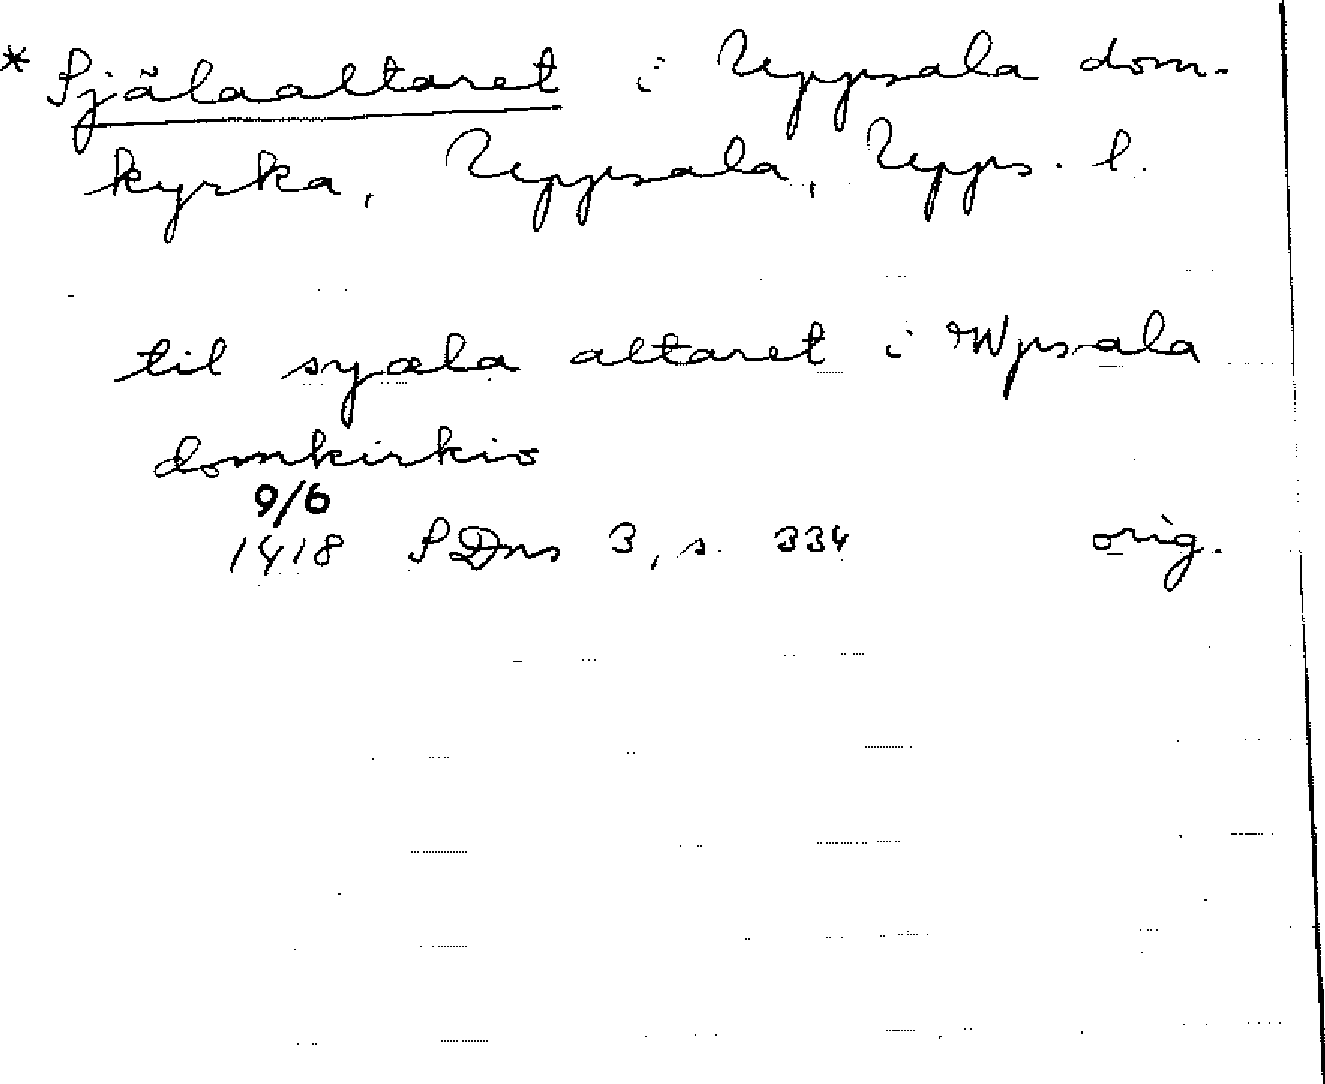 * Själaaltaret i Uppsala dom-
kyrka, Uppsala, Upps. l.
til syæla altaret i Wpsala
domkirkio
9/6
1418 SDns 3, s. 334 orig.